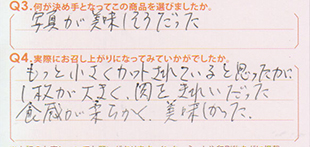 Q3.何が決め手となってこの商品を選びましたか。
写真が美味しそうだった
Q4.実際にお召し上がりになってみていかがでしたか。
もっと小さくカットされていると思ったが
1枚が大きく、肉もきれいだった
食感が柔らかく、美味しかった。